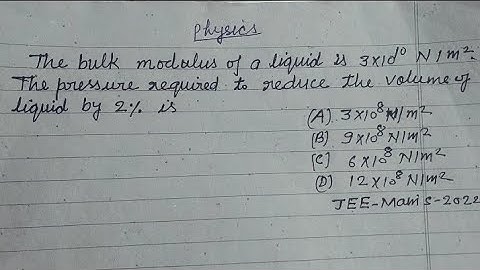 Physics
The bulk modulus of a liquid is 3×10¹⁰ N/m².
The pressure required to reduce the volume of
liquid by 2% is
(A) 3×10⁸ N/m²
(B) 9×10⁸ N/m²
(C) 6×10⁸ N/m²
(D) 12×10⁸ N/m²
JEE-Mains-2022